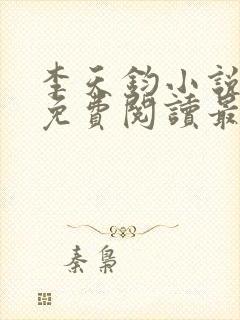 李天鈞小說
免費閱讀最
秦梟